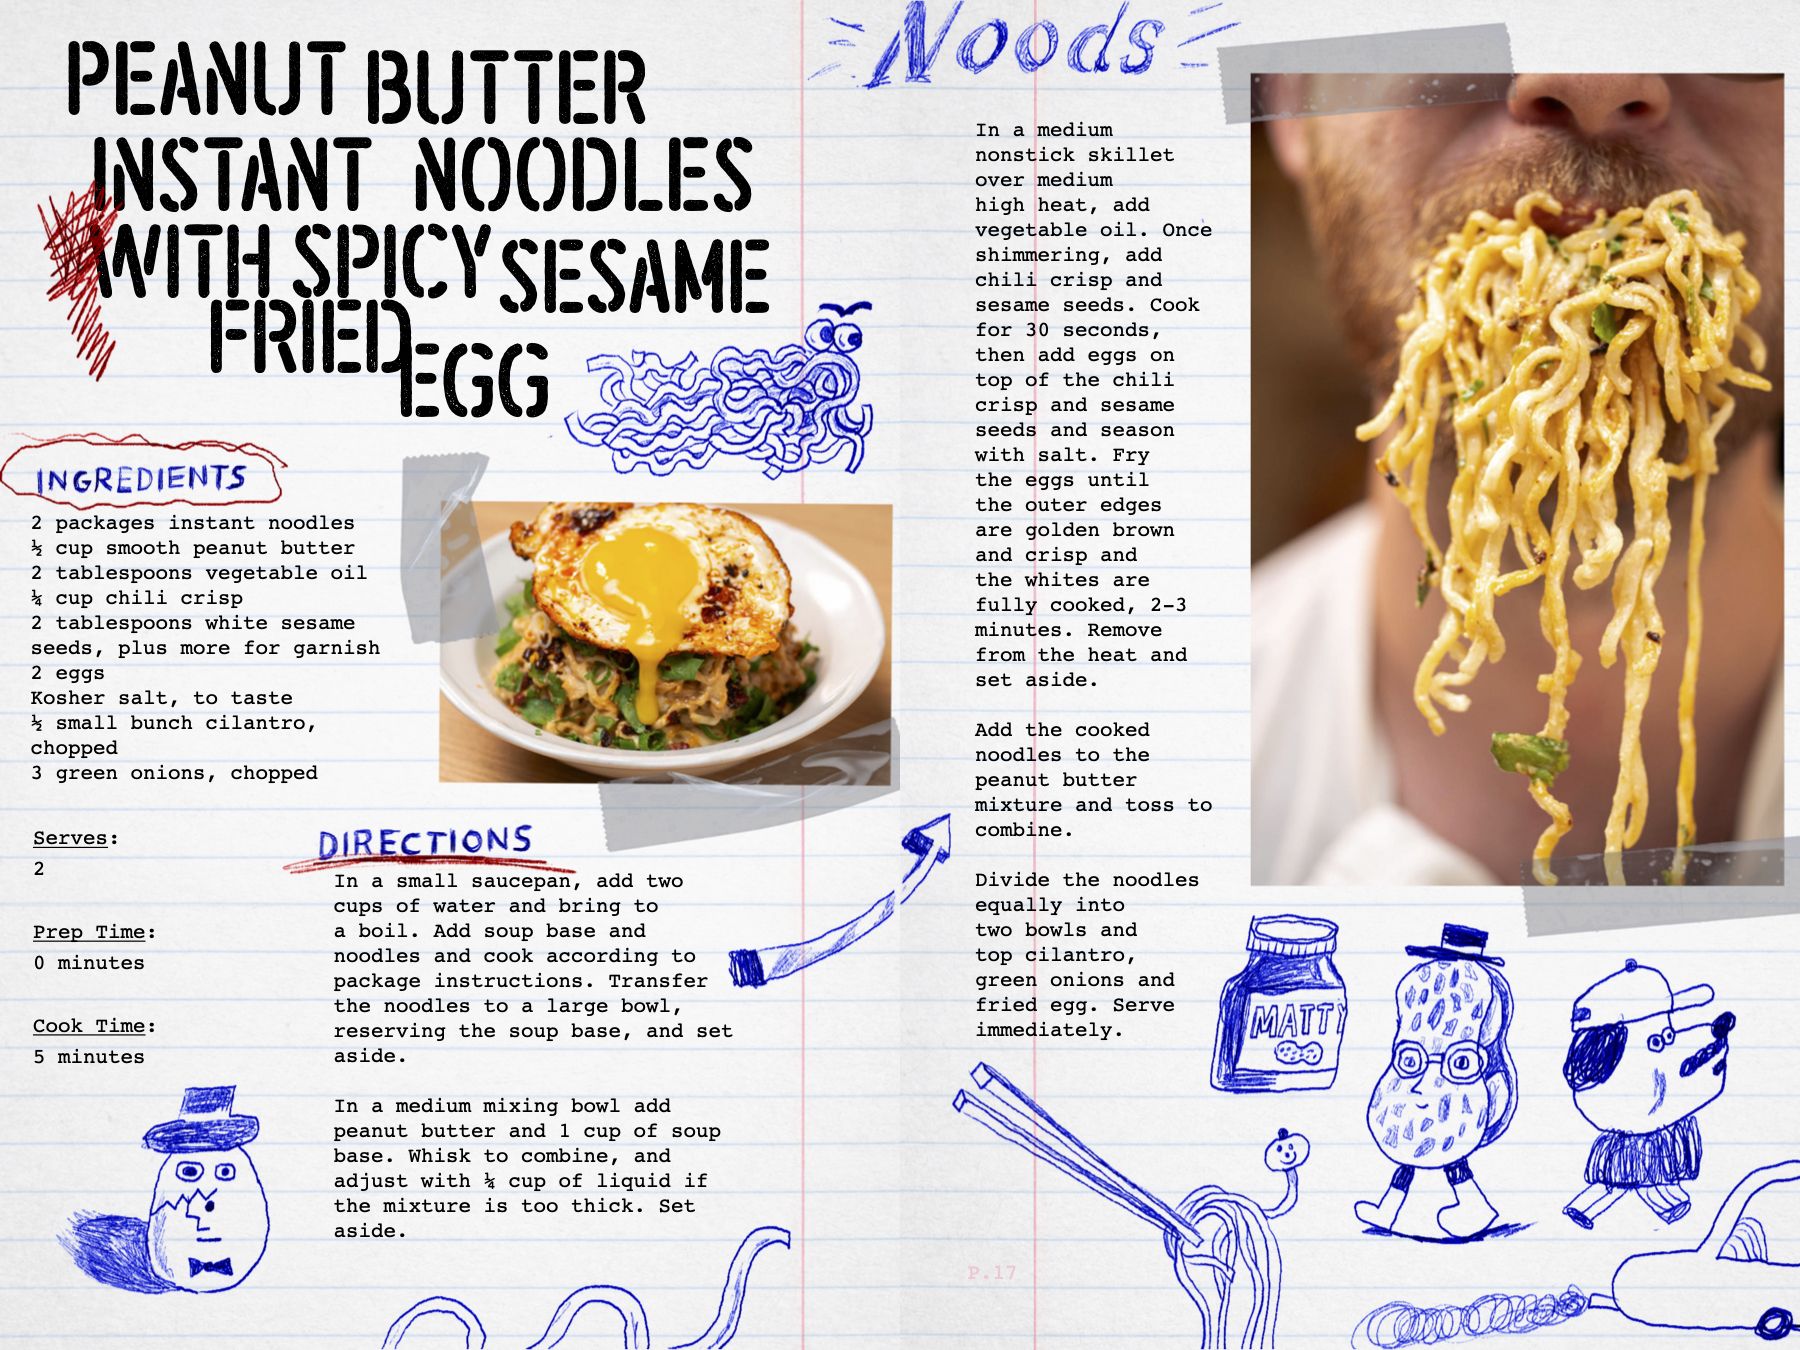 PEANUT BUTTER
INSTANT NOODLES
WITH SPICY SESAME
FRIED
EGG
INGREDIENTS
2 packages instant noodles
½ cup smooth peanut butter
2 tablespoons vegetable oil
¼ cup chili crisp
2 tablespoons white sesame
seeds, plus more for garnish
2 eggs
Kosher salt, to taste
½ small bunch cilantro,
chopped
3 green onions, chopped
Serves:
2
Prep Time:
0 minutes
Cook Time:
5 minutes
DIRECTIONS
In a small saucepan, add two
cups of water and bring to
a boil. Add soup base and
noodles and cook according to
package instructions. Transfer
the noodles to a large bowl,
reserving the soup base, and set
aside.
In a medium mixing bowl add
peanut butter and 1 cup of soup
base. Whisk to combine, and
adjust with ¼ cup of liquid if
the mixture is too thick. Set
aside.
Noods
In a medium
nonstick skillet
over medium
high heat, add
vegetable oil. Once
shimmering, add
chili crisp and
sesame seeds. Cook
for 30 seconds,
then add eggs on
top of the chili
crisp and sesame
seeds and season
with salt. Fry
the eggs until
the outer edges
are golden brown
and crisp and
the whites are
fully cooked, 2-3
minutes. Remove
from the heat and
set aside.
Add the cooked
noodles to the
peanut butter
mixture and toss to
combine.
Divide the noodles
equally into
two bowls and
top cilantro,
green onions and
fried egg. Serve
immediately.
MATTY
P.17